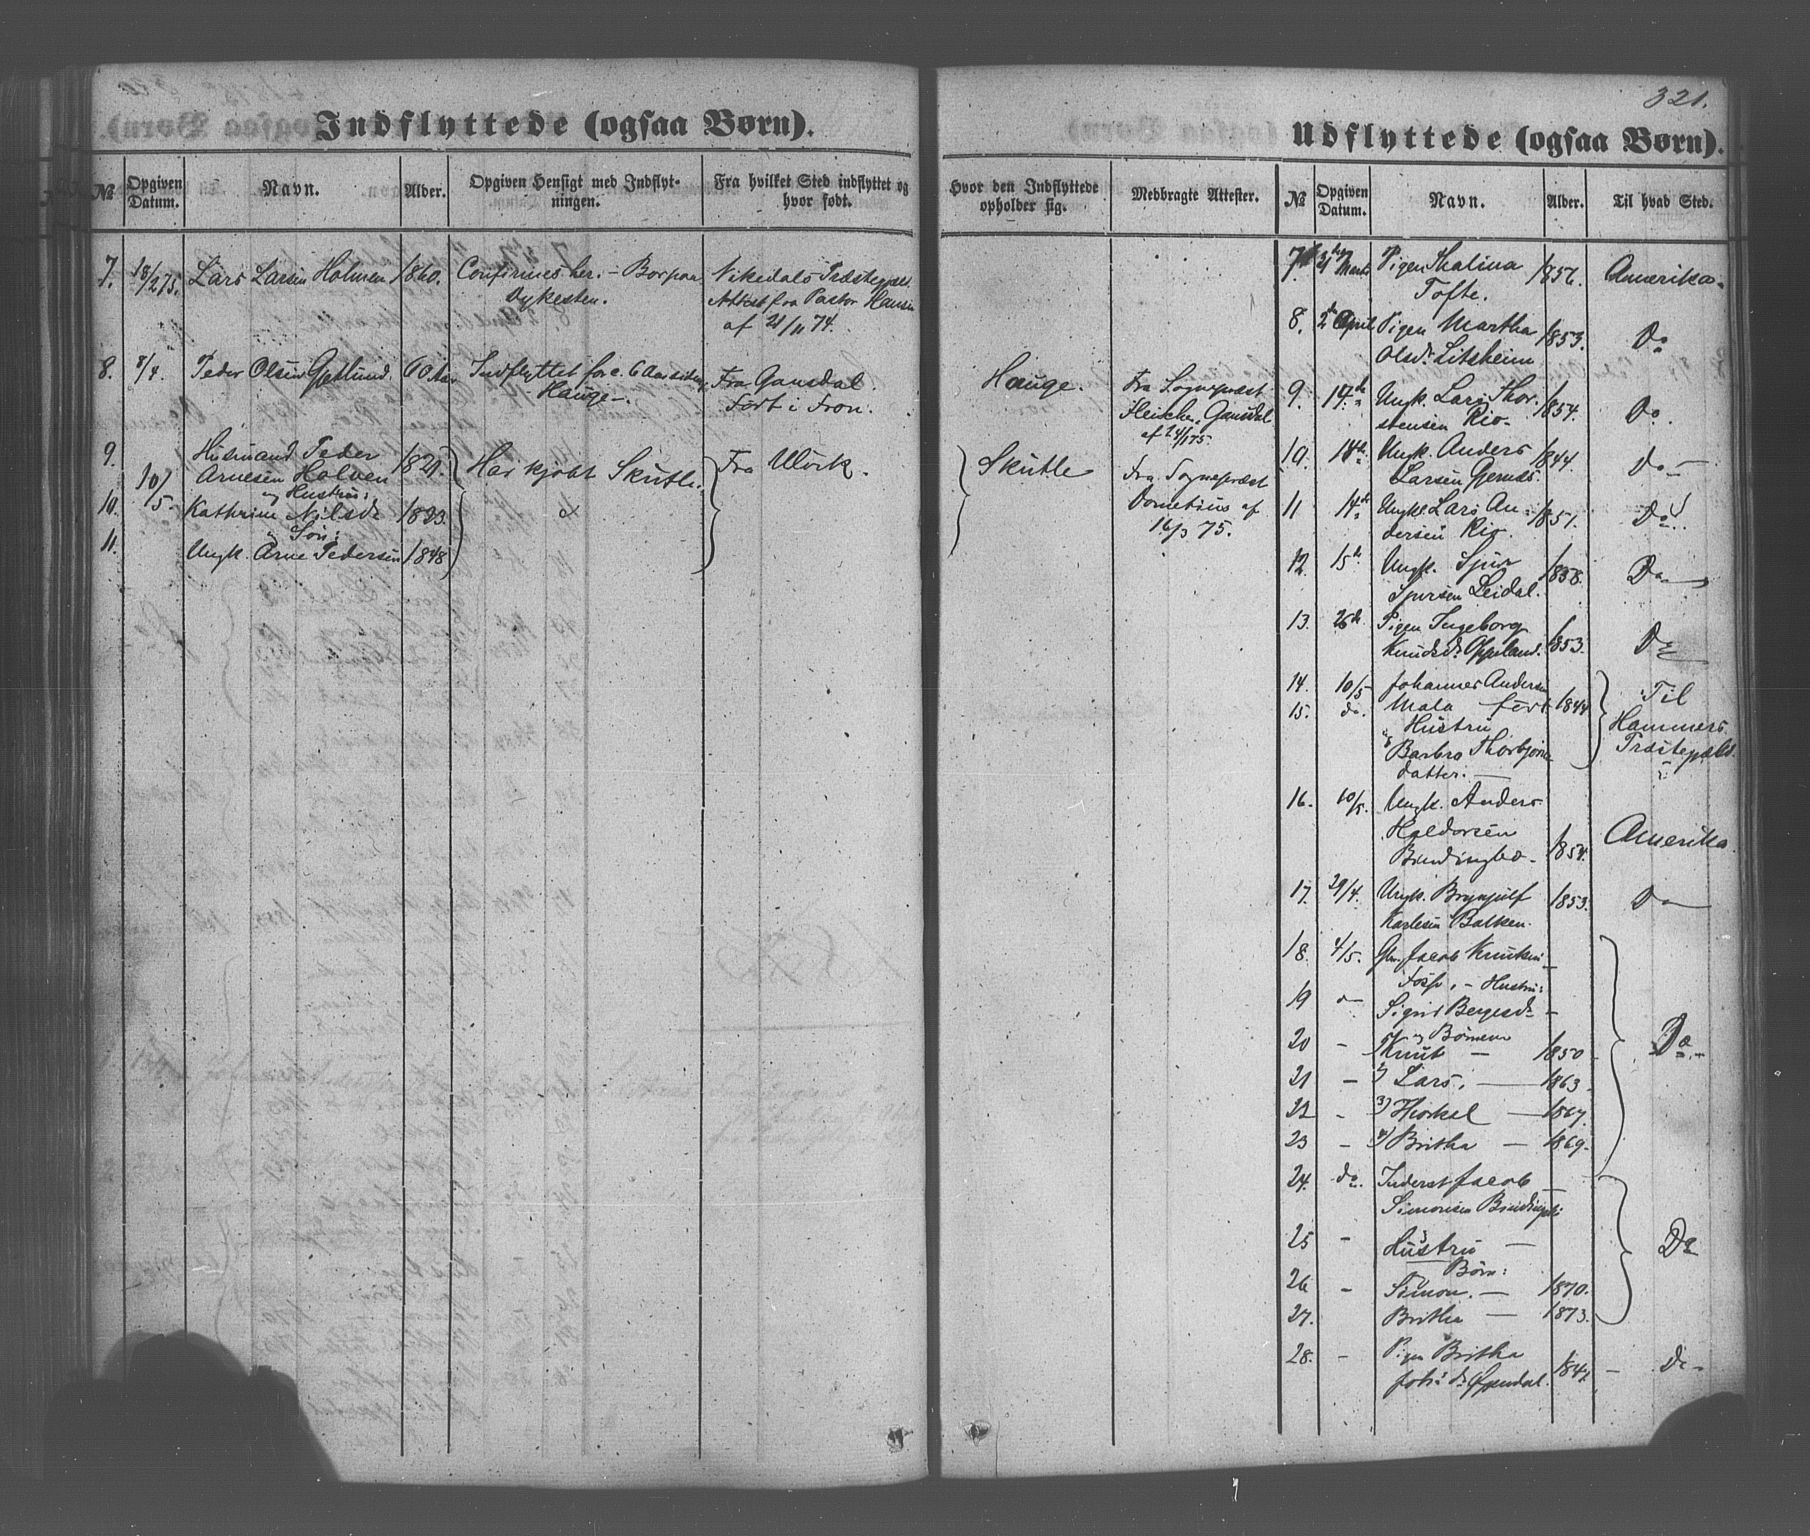 321.
Indflyttede (ogsaa Børn).
№ Opgiven Datum. Navn. Alder. Opgiven Hensigt med Indflytningen. Fra hvilket Sted indflyttet og hvor født.
7. 18/2 75. Lars Larsen Holmen 1860. Confirmes her. – Borpaa Nikedals Præstegjeld
Dykesten. Attest fra Pastor Hansen
af 21/11 74.
8. 8/4. Peder Olsen 60 Aar Indflyttet for c. 6 Aar siden Fra Gausdal.
Hauge. Født i Fron.
9. Husmand Peder
Arnesen Holven 1821. Har kjøbt Skutle. Fra Ulvik.
10/5. og Hustru:
10. Kathrine Nilsdr 1823.
og Søn:
11. Ungk. Arne Pedersen 1848
Udflyttede (ogsaa Børn).
Hvor den Indflyttede opholder sig. Medbragte Attester. № Opgiven Datum. Navn. Alder. Til hvad Sted.
Hauge. Fra Sogneprest
Gausdal
af 24/1 75.
Skutle Fra Sogneprest
af
16/3 75.
7. Marts Pigen Thalina 1856. Amerika.
Tofte.
8. 2 April Pigen Martha 1853. Do
Olsdr Litsheim
9. 14de Ungk. Lars Thor- 1854. Do.
stensen Rio.
10. 14de Ungk. Anders 1844. Do
Larsen
11 14de Ungk. Lars An- 1851. Do
dersen Rio.
12. 15de Ungk. Sjur 1858. Do
Sjursen Leidal.
13. 26de Pigen Ingeborg 1853. Do
Knudsdr Oppeland.
14. 10/5 Johannes Andersen Til
15. do. født 1844 Hammers
Hustru Præstegjeld.
Barbro Thorbjørns
datter.
16. 10/5. Ungk. Anders
Haldorsen Amerika.
1854.
17. 29/4. Ungk. Brynjulf 1853. Do
Karlesen Balken.
18. 4/5. Gbr. Jacob Knutsen
Fosse, – Hustru:
19 Sigrid Bergesdr –
og Børnene
20 – Knut – 1850 Do
21 – 2) Lars. – 1863
22 – 3) – 1867.
23 – 4) Britha – 1869.
24. do. Inderst Jacob
Simonsen
25 – Hustru – Do
Børn:
26 – Simon. – 1870.
27. Britha – 1873.
28. – Pigen Britha
Johs dr Øyendal. 1847. – Do